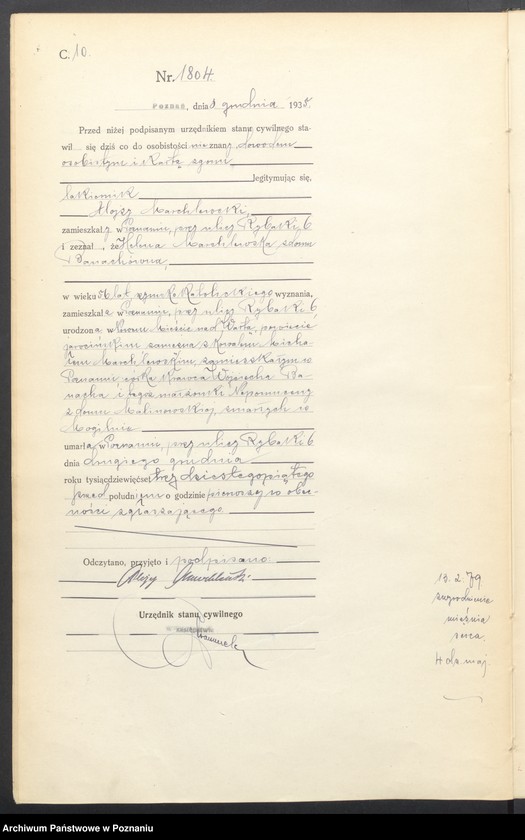 C. 10.
Nr. 1804.
Poznań, dnia 3 grudnia 1935.
Przed niżej podpisanym urzędnikiem stanu cywilnego sta-
wił się dziś co do osobistości nieznany dowodem
osobistym i kartą zgonu
legitymując się,
Alojzy Marchlewski,
zamieszkały w Poznaniu, przy ulicy Rybaki 6
i zeznał, że Helena Marchlewska z domu
w wieku 56 lat, wyznania,
zamieszkała w Poznaniu, przy ulicy Rybaki 6,
urodzona w Nowem Mieście nad Wartą, powiecie
jarocińskim zamężna z
Marchlewskim, zamieszkałym w
Poznaniu, córka krawca Wojciecha
i jego małżonki Nepomuceny
z domu Malinowskiej zmarłych w
Mogilnie
umarła w Poznaniu, przy ulicy Rybaki 6
dnia drugiego grudnia
roku tysiącdziewięćset trzydziestegopiątego
przed południem o godzinie pierwszej w obec-
ności zgłaszającego.
Odczytano, przyjęto i podpisano:
Alojzy Marchlewski
Urzędnik stanu cywilnego
w zastępstwie
13. 2. 79
mięśnia
serca.
4 dz. maj.
Archiwum Państwowe w Poznaniu